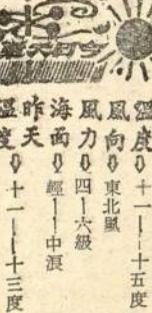 溫度⇩十一——十五度
風向⇩東北風
風力⇩四——六級
海面⇩經——中浪
昨天
溫度⇩十一——十三度